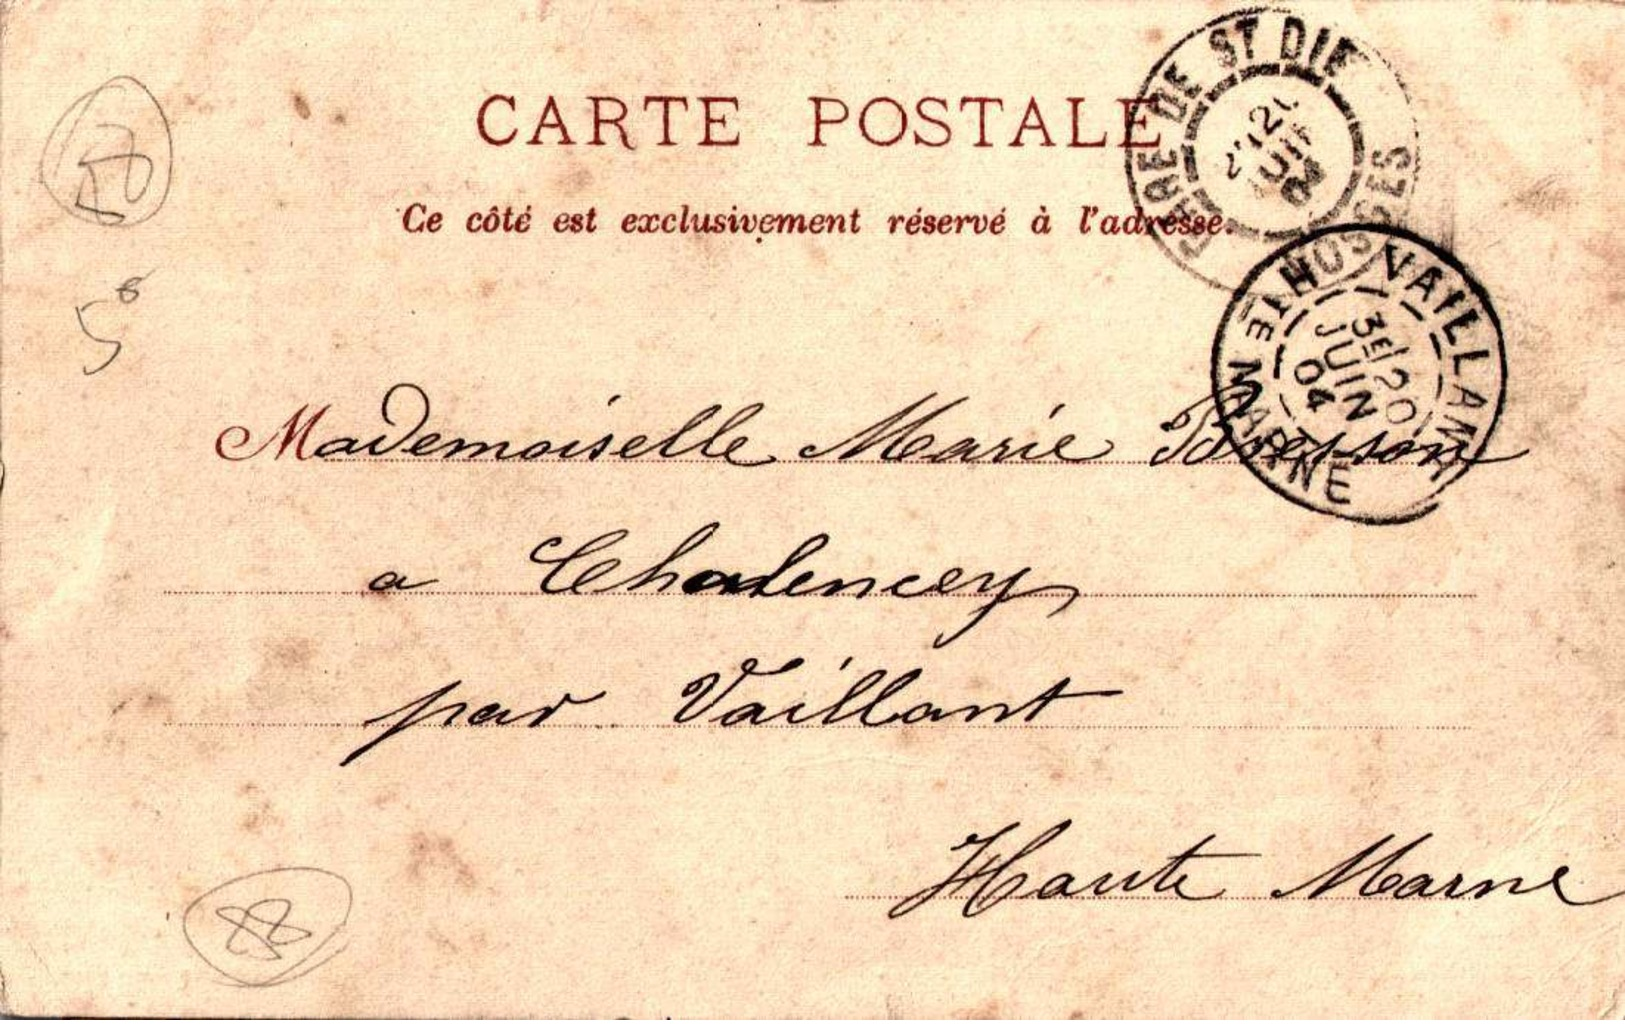 CARTE POSTALE
Ce côté est exclusivement réservé à l'adresse.
GARE DE ST DIE VOSGES
20 JUIN 04
VAILLANT HTE MARNE
3E/20
JUIN
04
Mademoiselle Marie
a Chalencey
par Vaillant
Haute Marne